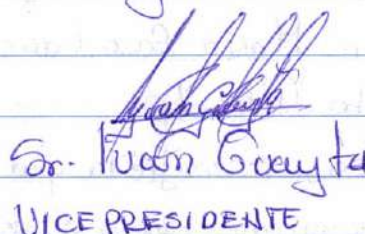 Sr. Ivan Guayta
VICEPRESIDENTE